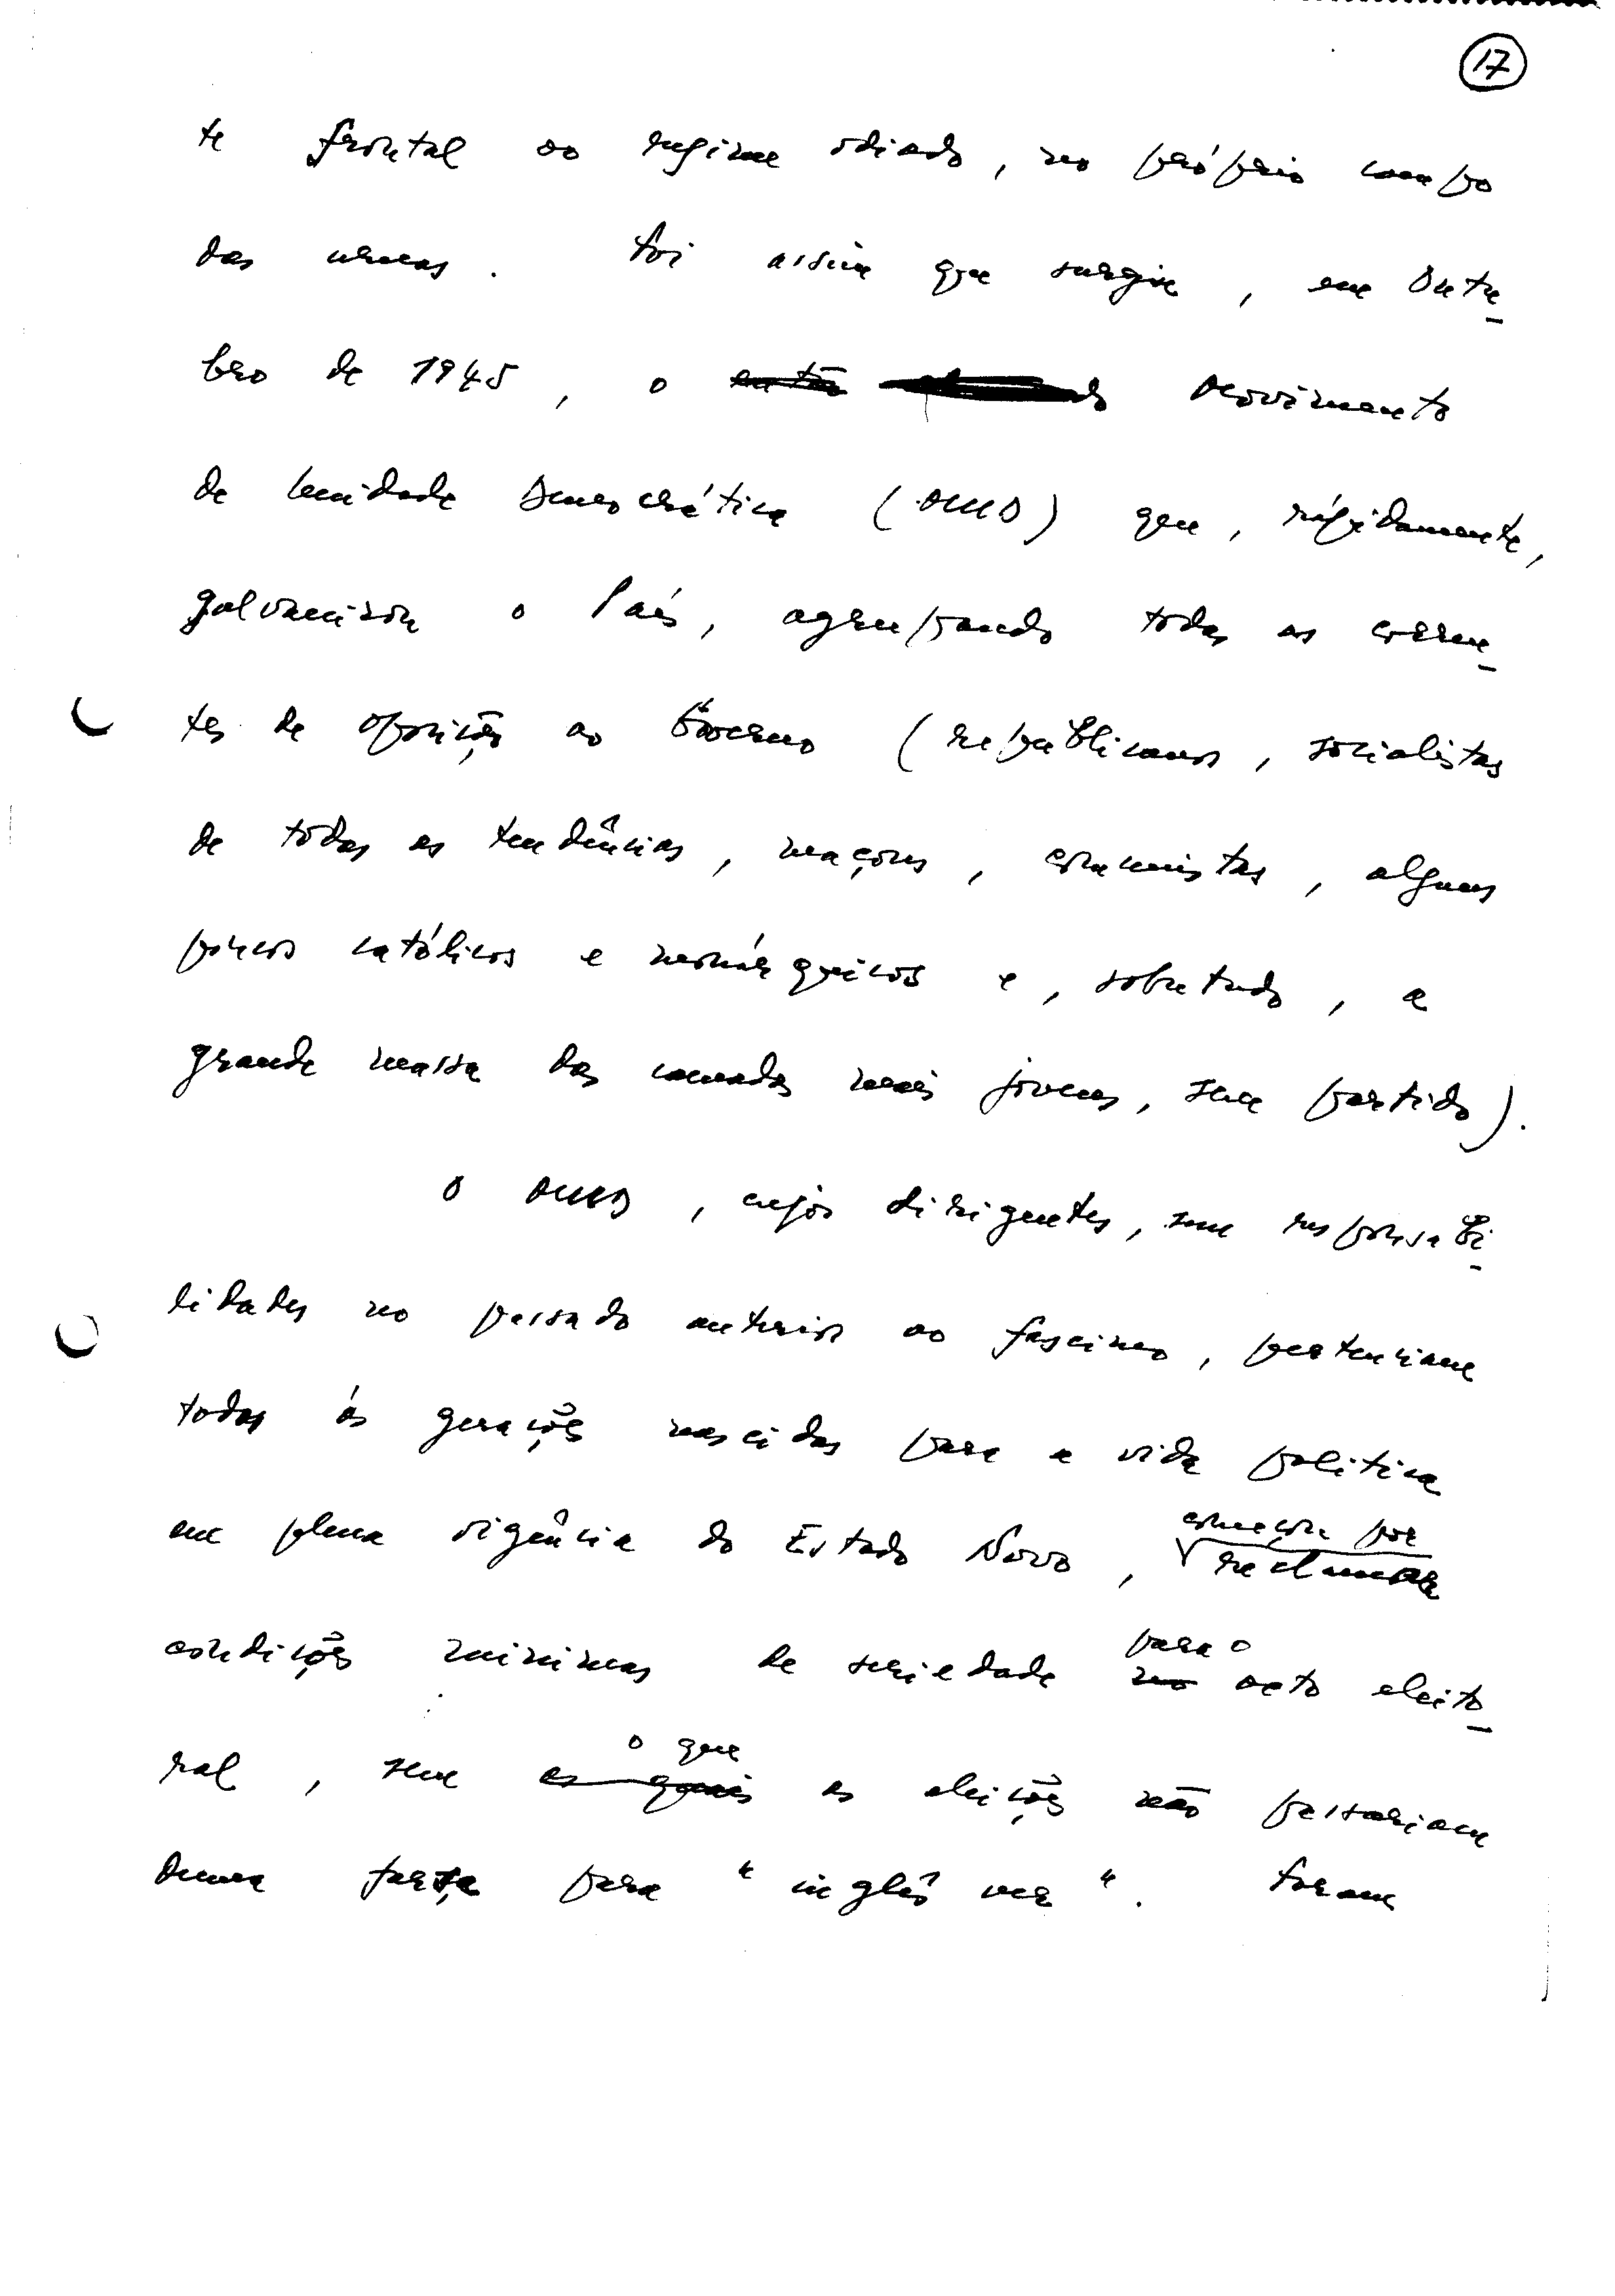 17
te frontal ao regime odiado, no próprio campo
das urnas. Foi assim que surgiu, em Outu-
bro de 1945, o então Movimento
de Unidade Democrática (MUD) que, rápidamente,
galvanizou o País, agrupando todas as corren-
tes de oposição ao Governo (republicanos, socialistas
de todas as tendências, maçons, comunistas, alguns
poucos católicos e monárquicos e, sobretudo, a
grande massa das camadas mais jovens, sem partido).
O MUD, cujos dirigentes, sem responsabi-
lidades no passado anterior ao fascismo, pertenciam
todos às gerações nascidas para a vida politica
em plena vigência do Estado Novo, começou por
reclamar
condições minimas de seriedade no para o acto eleito-
ral, sem as quais o que as eleições não passariam
duma farsa para "inglês ver". Foram